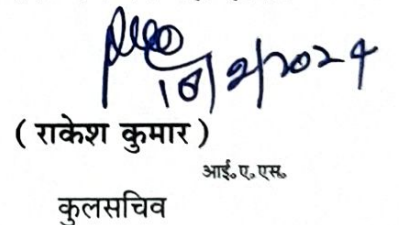 16/2/2024
( राकेश कुमार )
आई॰ए॰एस॰
कुलसचिव